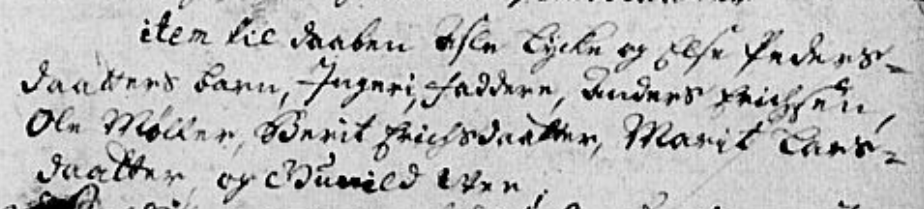 item til daaben Asle Lycke og Else Peders-
daatters barn, Ingeri, faddere, Anders Erichsen,
Ole Møller, Berit Erichsdaatter, Marit Lars-
daatter og Gunild